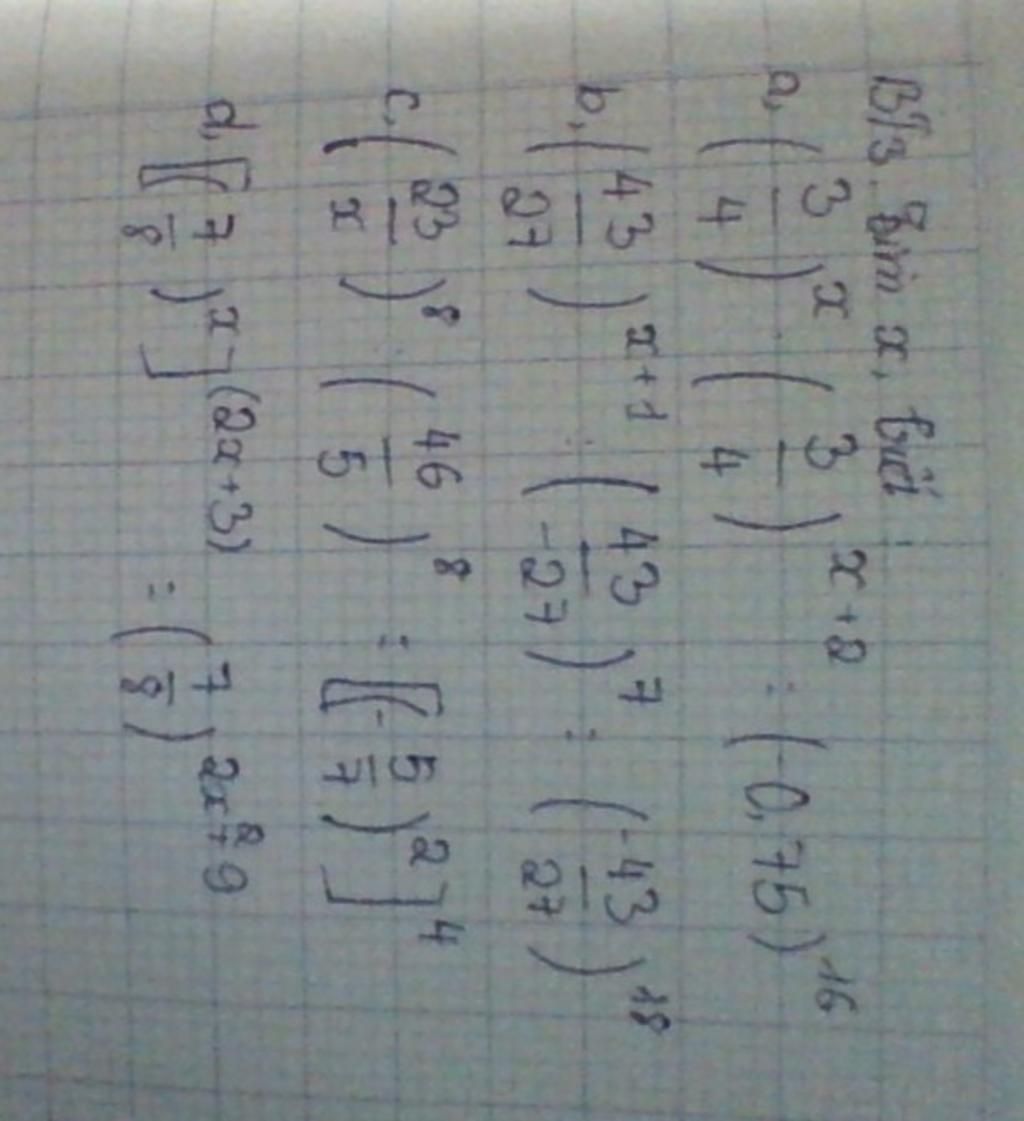 BT3. Tìm x, biết:
a, (3/4)^x (3/4)^{x+2} = (-0,75)^{16}
b, (43/27)^{x+1} : (43/-27)^7 = (-43/27)^{18}
c, (23/x)^8 : (46/5)^8 = [(-5/7)^2]^4
d, [(7/8)^x]^{(2x+3)} = (7/8)^{2x^2+9}